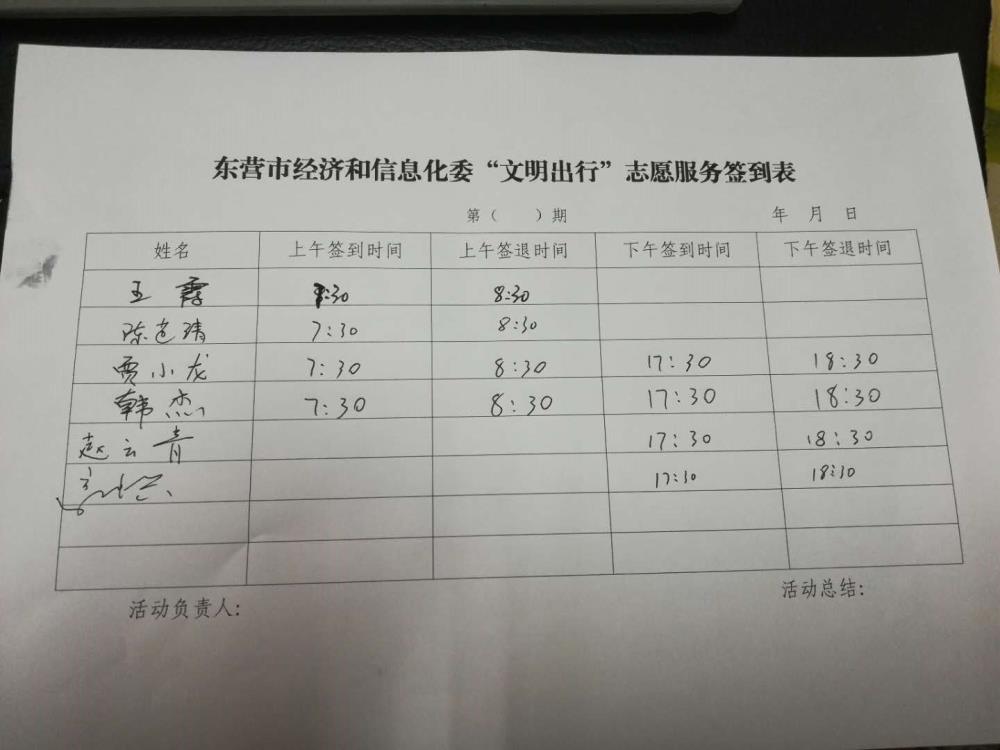 东营市经济和信息化委“文明出行”志愿服务签到表
第（ ）期 年 月 日
姓名 上午签到时间 上午签退时间 下午签到时间 下午签退时间
王霞 7:30 8:30
陈 7:30 8:30
贾小龙 7:30 8:30 17:30 18:30
韩杰 7:30 8:30 17:30 18:30
赵云青 17:30 18:30
17:30 18:30
活动负责人: 活动总结: